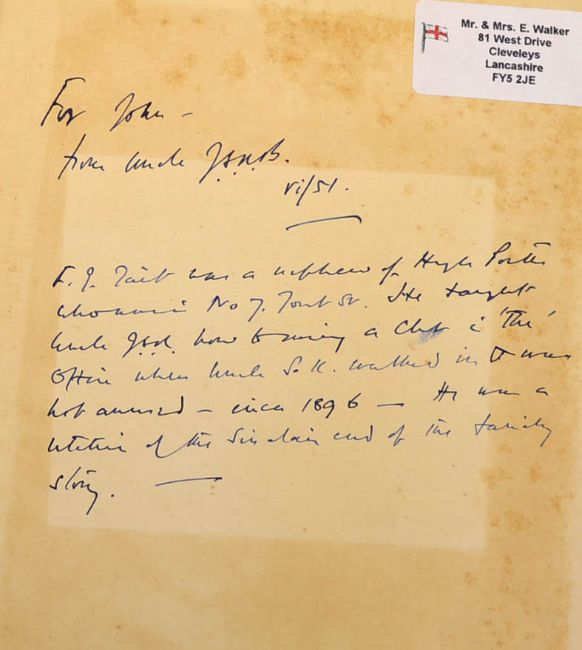 Mr. & Mrs. E. Walker
81 West Drive
Cleveleys
Lancashire
FY5 2JE
For John –
from Uncle J.H.N.B.
vi/51.
F. G. Tait was a nephew of Hugh Porter
No 7. He taught
Uncle how to swing a club in 'The'
Office when Uncle S.K. walked in & was
not amused – circa 1896 – He was a
of the Sinclair end of the family
story.